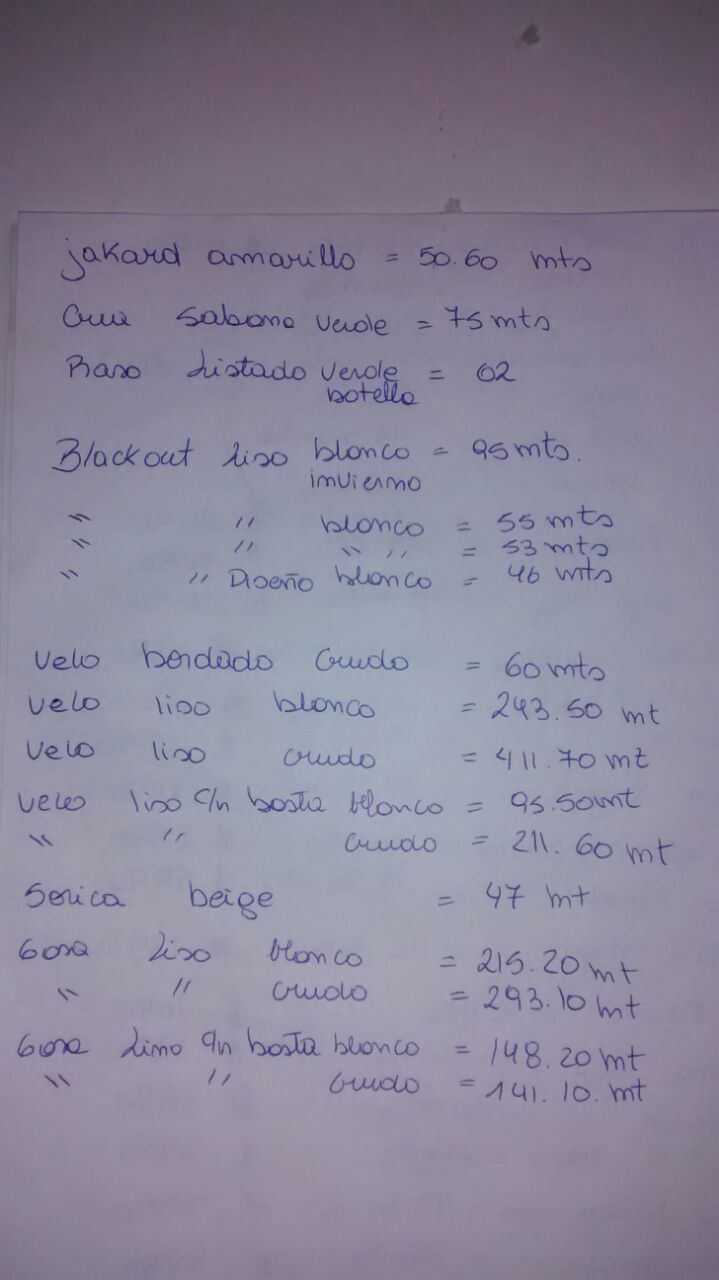 jakard amarillo = 50.60 mts
Crea Sabana verde = 75 mts
Raso Listado verde = 02
botella
Blackout liso blanco = 95 mts.
invierno
" " blanco = 55 mts
" " " " = 53 mts
" " Diseño blanco = 46 mts
Velo bordado Crudo = 60 mts
Velo liso blanco = 243.50 mt
Velo liso crudo = 411.70 mt
Velo liso c/n basta blanco = 95.50 mt
" " crudo = 211.60 mt
Serica beige = 47 mt
Gasa Liso blanco = 215.20 mt
" " crudo = 293.10 mt
Gasa Lino c/n basta blanco = 148.20 mt
" " crudo = 141.10. mt